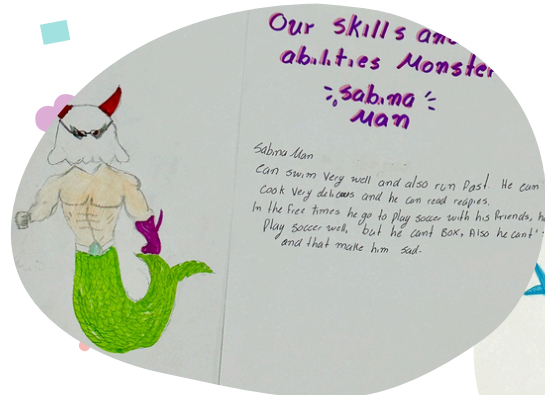 Our skills and
abilities Monster
Sabina
Man
Sabina Man
Can swim very well and also run fast. He can
cook very delicous and he can read reapies.
In the free times he go to play soccer with his friends, h
Play soccer well, but he cant Box, Also he cant'
and that make him sad.